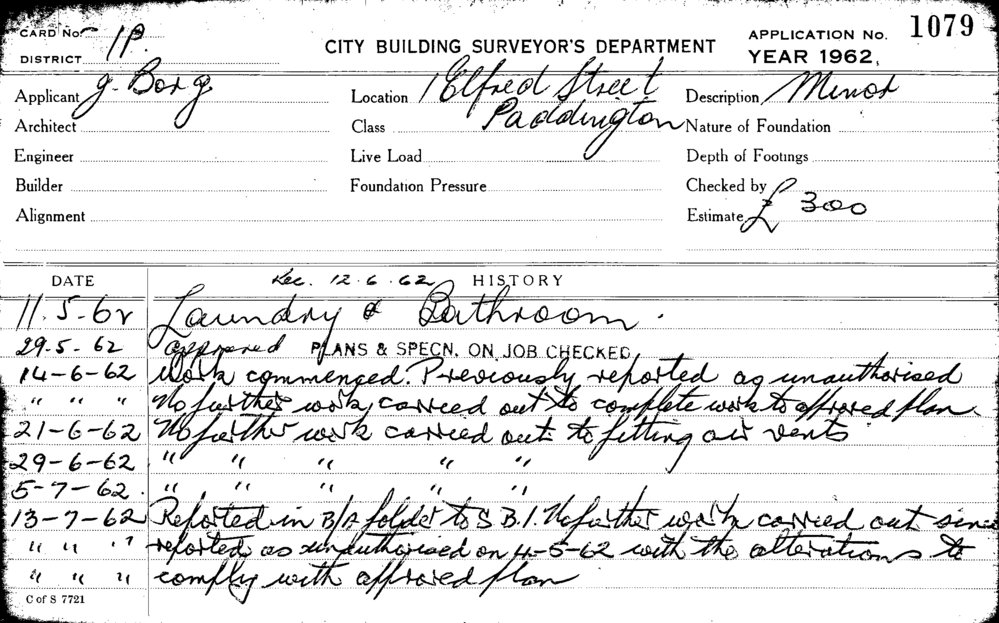 CARD No. 1P.
DISTRICT
CITY BUILDING SURVEYOR'S DEPARTMENT
APPLICATION No. 1079
YEAR 1962,
Applicant g. Borg
Location 1 Elfred Street
Paddington
Description Minor
Architect
Class
Nature of Foundation
Engineer
Live Load
Depth of Footings
Builder
Foundation Pressure
Checked by
Alignment
Estimate £ 300
DATE
Rec. 12.6.62
HISTORY
11.5-62 Laundry & Bathroom.
29.5-62 approved PLANS & SPECN. ON JOB CHECKED
14-6-62 Work commenced. Previously reported as unauthorised
" " " No further work carried out to complete work to approved plan.
21-6-62 No further work carried out to fitting air vents
29-6-62 " " " " "
5-7-62. " " " " "
13-7-62 Reported in B/A folder to S B.I. No further work carried out since
" " " reported as unauthorised on 4-5-62 with the alterations to
" " " comply with approved plan
C of S 7721